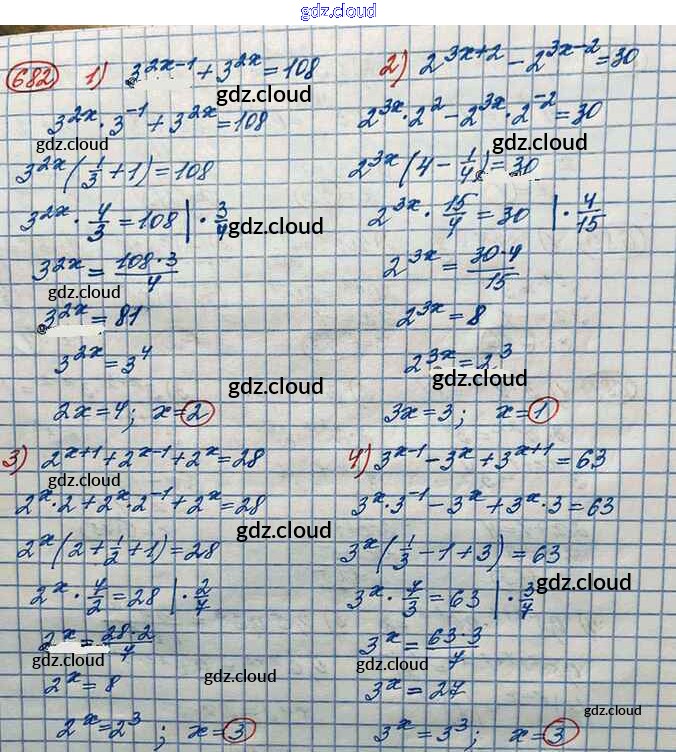 gdz.cloud
682 1) 3^(2x-1) + 3^(2x) = 108
3^(2x) · 3^(-1) + 3^(2x) = 108
3^(2x) (1/3 + 1) = 108
3^(2x) · 4/3 = 108 | · 3/4
3^(2x) = (108·3)/4
3^(2x) = 81
3^(2x) = 3^4
2x = 4; x = 2
2) 2^(3x+2) - 2^(3x-2) = 30
2^(3x) · 2^2 - 2^(3x) · 2^(-2) = 30
2^(3x) (4 - 1/4) = 30
2^(3x) · 15/4 = 30 | · 4/15
2^(3x) = (30·4)/15
2^(3x) = 8
2^(3x) = 2^3
3x = 3; x = 1
3) 2^(x+1) + 2^(x-1) + 2^x = 28
2^x · 2 + 2^x · 2^(-1) + 2^x = 28
2^x (2 + 1/2 + 1) = 28
2^x · 7/2 = 28 | · 2/7
2^x = (28·2)/7
2^x = 8
2^x = 2^3; x = 3
4) 3^(x-1) - 3^x + 3^(x+1) = 63
3^x · 3^(-1) - 3^x + 3^x · 3 = 63
3^x (1/3 - 1 + 3) = 63
3^x · 7/3 = 63 | · 3/7
3^x = (63·3)/7
3^x = 27
3^x = 3^3; x = 3
gdz.cloud
gdz.cloud
gdz.cloud
gdz.cloud
gdz.cloud
gdz.cloud
gdz.cloud
gdz.cloud
gdz.cloud
gdz.cloud
gdz.cloud
gdz.cloud
gdz.cloud
gdz.cloud